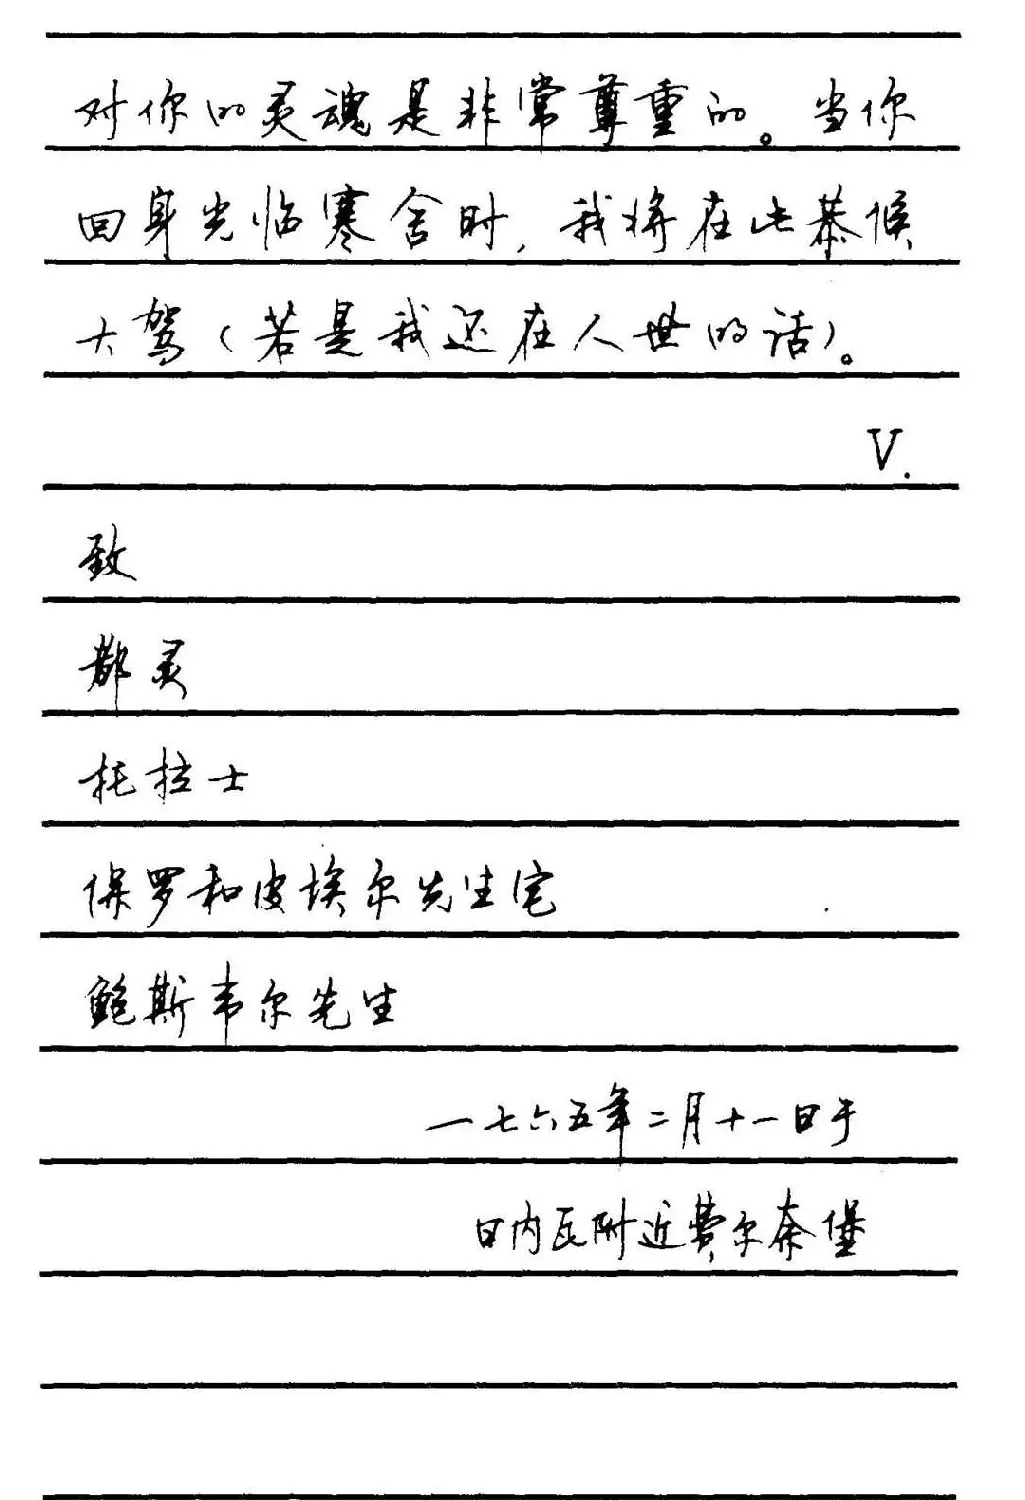 对你的灵魂是非常尊重的。当你
回身光临寒舍时，我将在此恭候
大驾（若是我还在人世的话）。
V.
致
都灵
托拉士
保罗和皮埃尔先生宅
鲍斯韦尔先生
一七六五年二月十一日于
日内瓦附近费尔奈堡